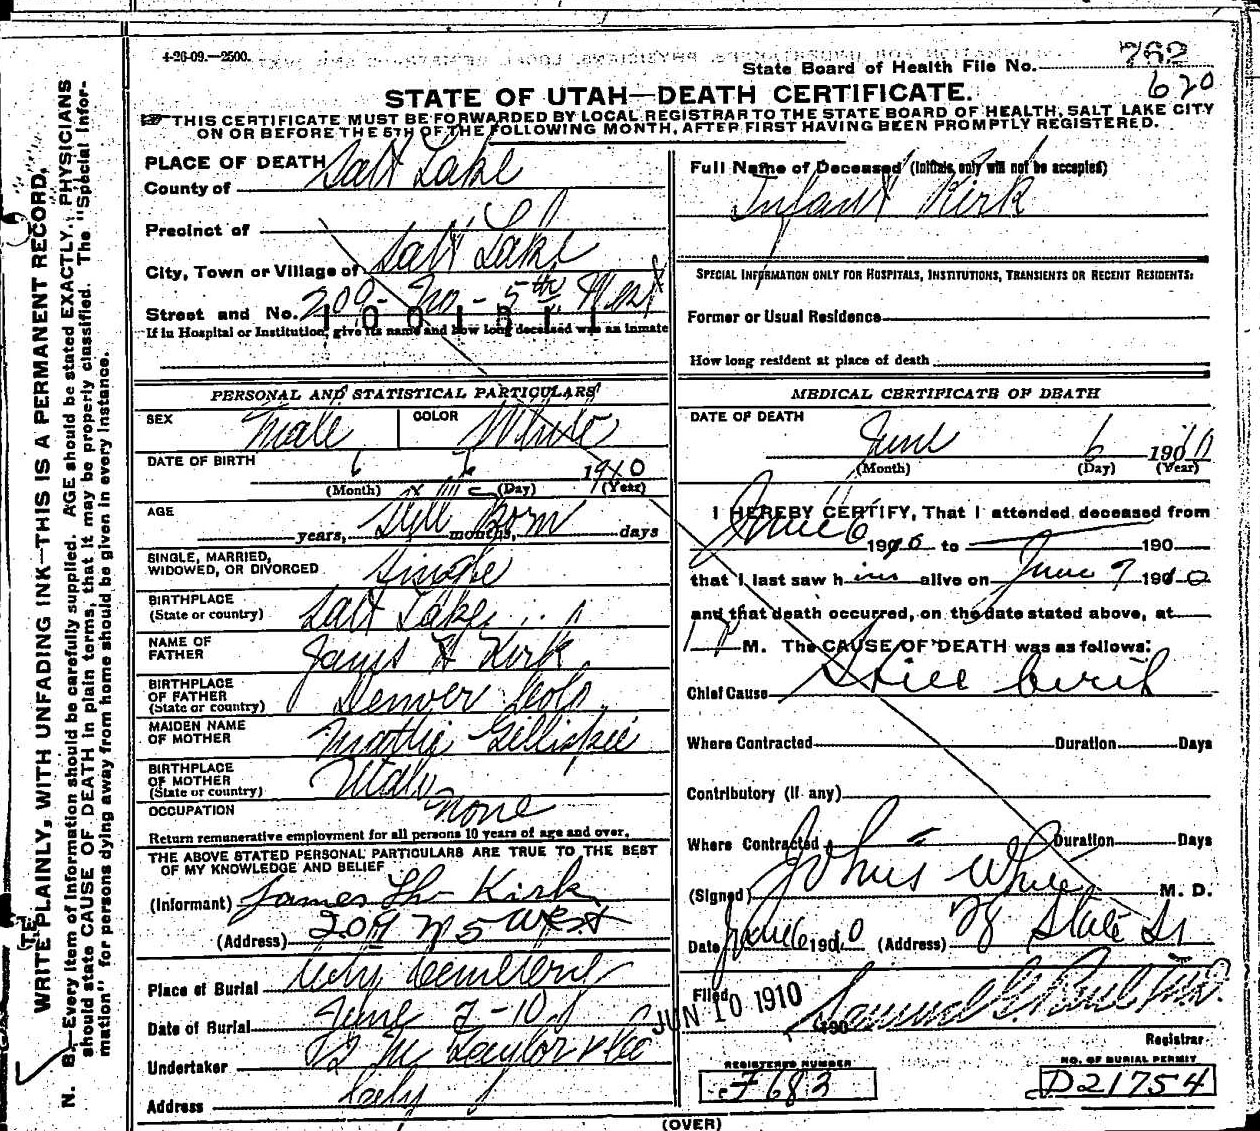 4-26-09.—2500.
State Board of Health File No. 752
620
STATE OF UTAH—DEATH CERTIFICATE.
THIS CERTIFICATE MUST BE FORWARDED BY LOCAL REGISTRAR TO THE STATE BOARD OF HEALTH, SALT LAKE CITY
ON OR BEFORE THE 5TH OF THE FOLLOWING MONTH, AFTER FIRST HAVING BEEN PROMPTLY REGISTERED.
WRITE PLAINLY, WITH UNFADING INK—THIS IS A PERMANENT RECORD.
N. B.—Every item of information should be carefully supplied. AGE should be stated EXACTLY. PHYSICIANS
should state CAUSE OF DEATH in plain terms, that it may be properly classified. The "Special Infor-
mation" for persons dying away from home should be given in every instance.
PLACE OF DEATH
County of Salt Lake
Precinct of
City, Town or Village of Salt Lake
Street and No. 209 - No - 5th West
If in Hospital or Institution, give its name and how long deceased was an inmate
PERSONAL AND STATISTICAL PARTICULARS
SEX Male COLOR White
DATE OF BIRTH 6 6 1910
(Month) (Day) (Year)
AGE Still Born
years, months, days
SINGLE, MARRIED,
WIDOWED, OR DIVORCED Single
BIRTHPLACE
(State or country) Salt Lake
NAME OF
FATHER James H Kirk
BIRTHPLACE
OF FATHER
(State or country) Denver Colo
MAIDEN NAME
OF MOTHER Mattie Gillispie
BIRTHPLACE
OF MOTHER
(State or country) Utah
OCCUPATION None
Return remunerative employment for all persons 10 years of age and over.
THE ABOVE STATED PERSONAL PARTICULARS ARE TRUE TO THE BEST
OF MY KNOWLEDGE AND BELIEF
(Informant) James H Kirk
(Address) 209 N 5 West
Place of Burial City Cemetery
Date of Burial June 7-10
Undertaker Taylor & Co
Address City
Full Name of Deceased (Initials only will not be accepted)
Infant Kirk
SPECIAL INFORMATION ONLY FOR HOSPITALS, INSTITUTIONS, TRANSIENTS OR RECENT RESIDENTS:
Former or Usual Residence
How long resident at place of death
MEDICAL CERTIFICATE OF DEATH
DATE OF DEATH
June 6 1910
(Month) (Day) (Year)
I HEREBY CERTIFY, That I attended deceased from
June 6 190 to 190
that I last saw him alive on June 1910
and that death occurred, on the date stated above, at
1 P M. The CAUSE OF DEATH was as follows:
Chief Cause Still birth
Where Contracted Duration Days
Contributory (If any)
Where Contracted Duration Days
(Signed) White M. D.
Date June 6 1910 (Address) State St
Filed JUN 10 1910 190
Samuel G. Paul
Registrar
REGISTERED NUMBER
F683
NO. OF BURIAL PERMIT
D21754
(OVER)